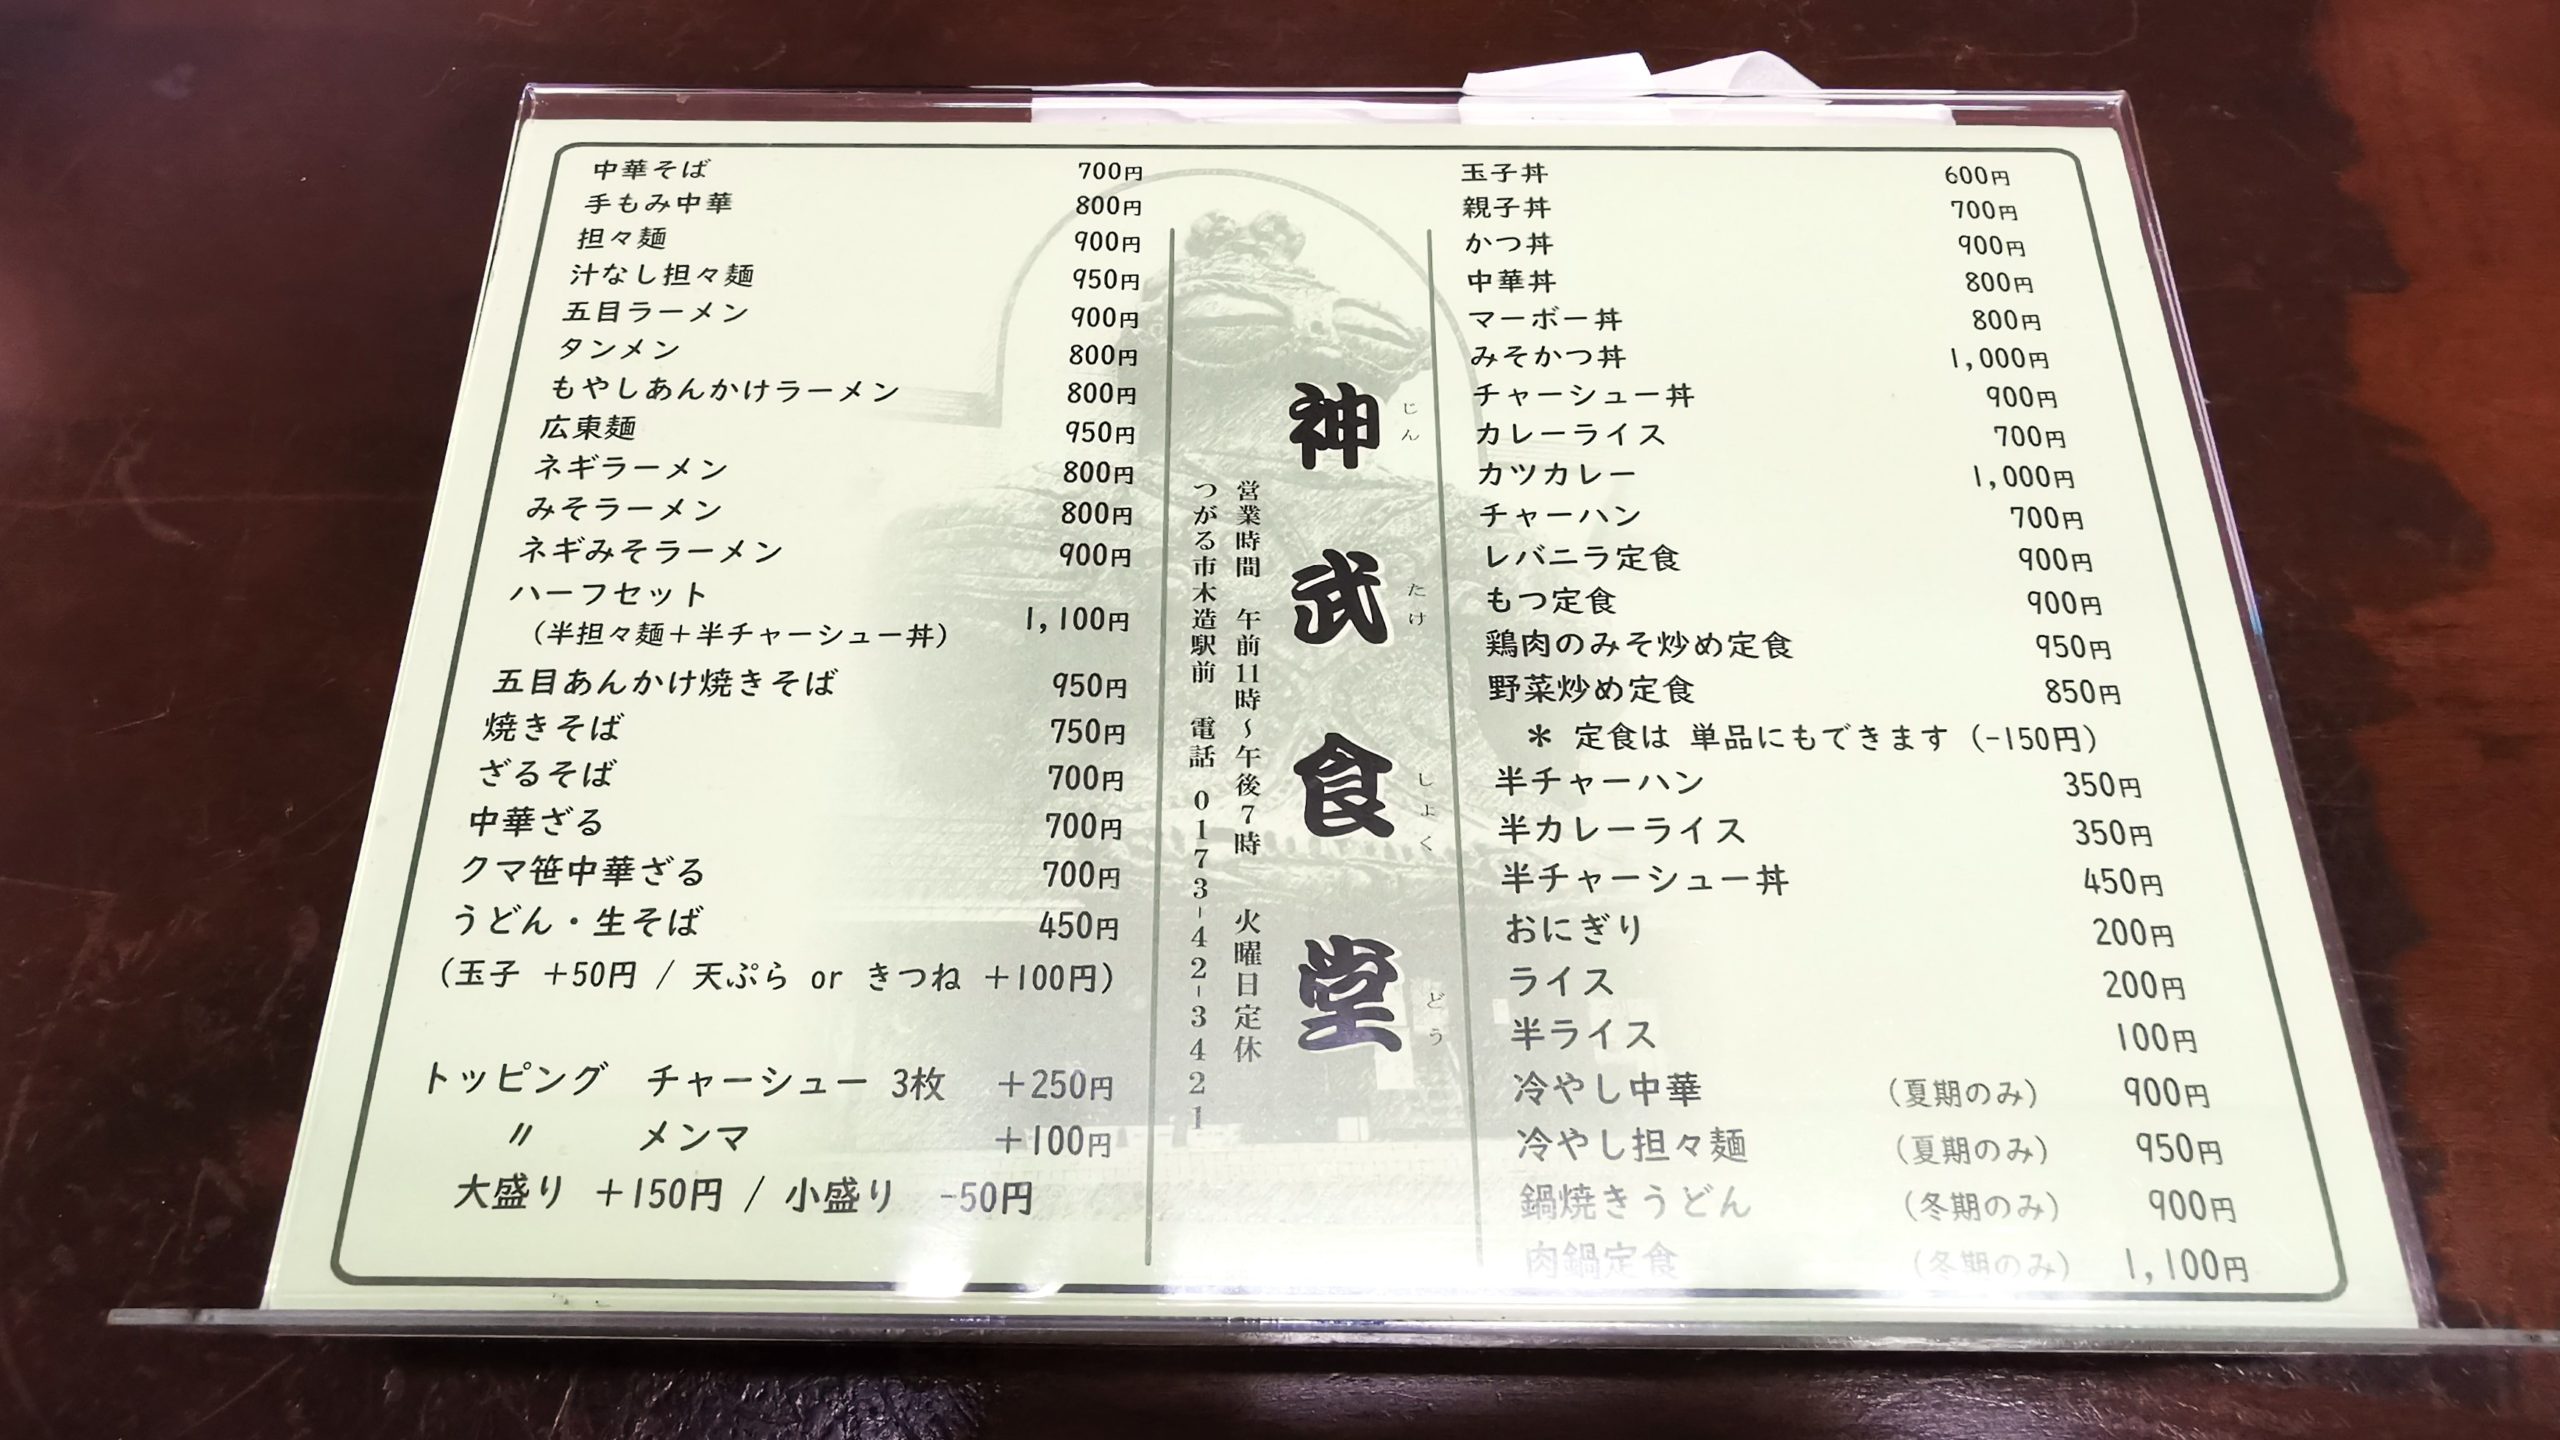 中華そば 700円
手もみ中華 800円
担々麺 900円
汁なし担々麺 950円
五目ラーメン 900円
タンメン 800円
もやしあんかけラーメン 800円
広東麺 950円
ネギラーメン 800円
みそラーメン 800円
ネギみそラーメン 900円
ハーフセット
(半担々麺+半チャーシュー丼) 1,100円
五目あんかけ焼きそば 950円
焼きそば 750円
ざるそば 700円
中華ざる 700円
クマ笹中華ざる 700円
うどん・生そば 450円
(玉子 +50円 / 天ぷら or きつね +100円)
トッピング チャーシュー 3枚 +250円
〃 メンマ +100円
大盛り +150円 / 小盛り -50円
神武食堂
じん たけ しょく どう
営業時間 午前11時~午後7時 火曜日定休
つがる市木造駅前 電話 0173-42-3421
玉子丼 600円
親子丼 700円
かつ丼 900円
中華丼 800円
マーボー丼 800円
みそかつ丼 1,000円
チャーシュー丼 900円
カレーライス 700円
カツカレー 1,000円
チャーハン 700円
レバニラ定食 900円
もつ定食 900円
鶏肉のみそ炒め定食 950円
野菜炒め定食 850円
* 定食は 単品にもできます (-150円)
半チャーハン 350円
半カレーライス 350円
半チャーシュー丼 450円
おにぎり 200円
ライス 200円
半ライス 100円
冷やし中華 (夏期のみ) 900円
冷やし担々麺 (夏期のみ) 950円
鍋焼きうどん (冬期のみ) 900円
肉鍋定食 (冬期のみ) 1,100円